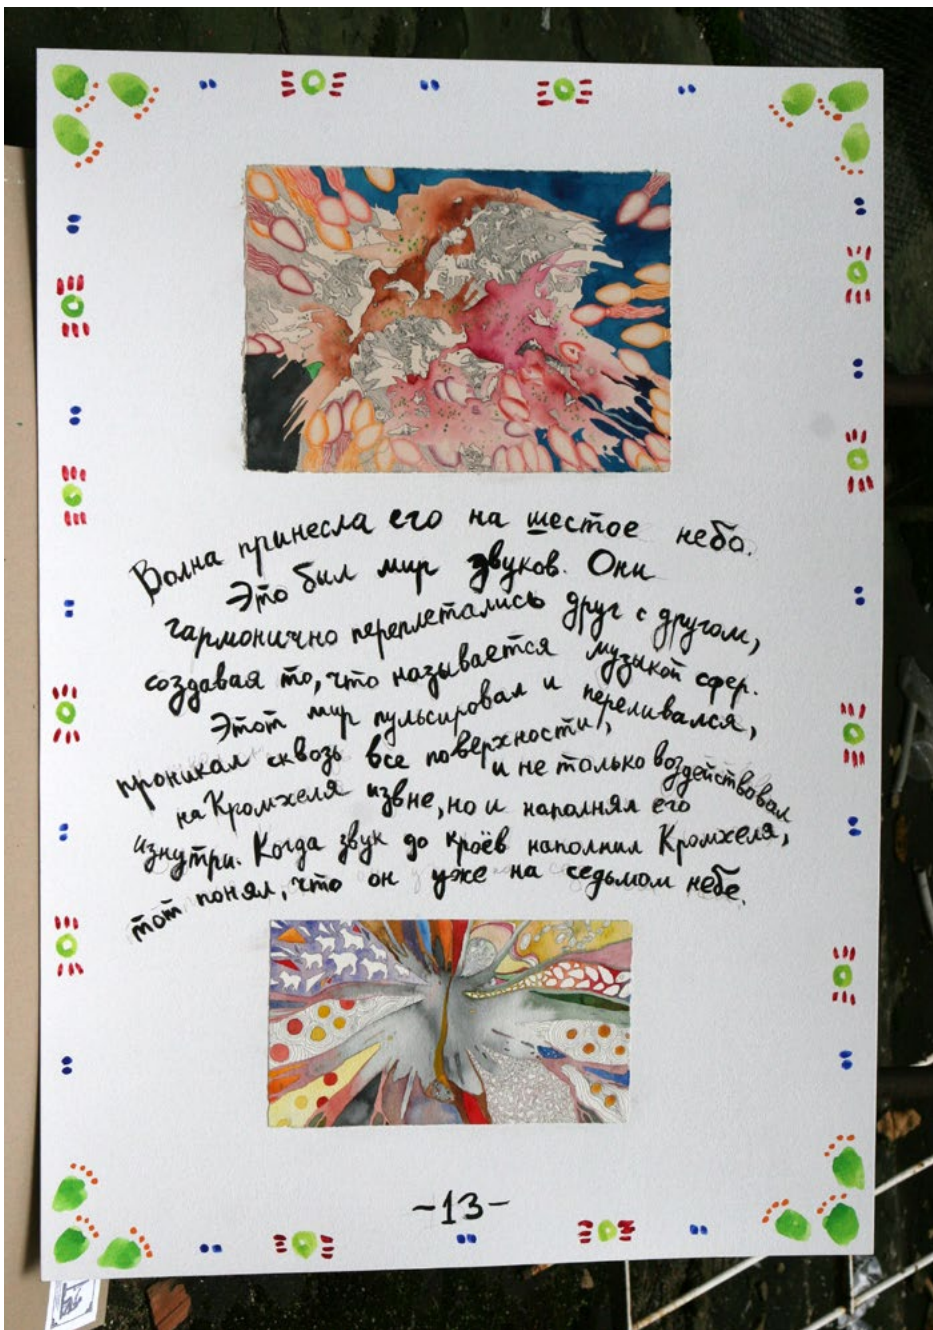 Волна принесла его на шестое небо.
Это был мир звуков. Они
гармонично переплетались друг с другом,
создавая то, что называется музыкой сфер.
Этот мир пульсировал и переливался,
проникал сквозь все поверхности,
и не только воздействовал
на Кромхеля извне, но и наполнял его
изнутри. Когда звук до краёв наполнил Кромхеля,
тот понял, что он уже на седьмом небе.
-13-